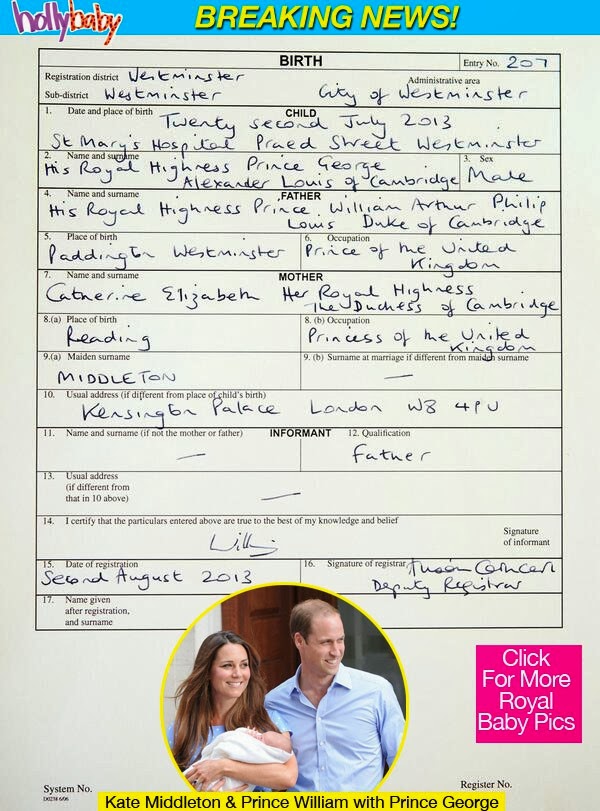 hollybaby
BREAKING NEWS!
BIRTH
Entry No. 207
Registration district Westminster
Administrative area
Sub-district Westminster
City of Westminster
CHILD
1. Date and place of birth
Twenty second July 2013
St Mary's Hospital Praed Street Westminster
2. Name and surname
3. Sex
His Royal Highness Prince George
Alexander Louis of Cambridge
Male
FATHER
4. Name and surname
His Royal Highness Prince William Arthur Philip
Louis Duke of Cambridge
5. Place of birth
Paddington Westminster
6. Occupation
Prince of the United
Kingdom
MOTHER
7. Name and surname
Catherine Elizabeth Her Royal Highness
The Duchess of Cambridge
8.(a) Place of birth
Reading
8. (b) Occupation
Princess of the United
Kingdom
9.(a) Maiden surname
MIDDLETON
9. (b) Surname at marriage if different from maiden surname
—
10. Usual address (if different from place of child's birth)
Kensington Palace London W8 4PU
INFORMANT
11. Name and surname (if not the mother or father)
—
12. Qualification
Father
13. Usual address
(if different from
that in 10 above)
—
14. I certify that the particulars entered above are true to the best of my knowledge and belief
Signature
of informant
15. Date of registration
Second August 2013
16. Signature of registrar
Deputy Registrar
17. Name given
after registration,
and surname
Click
For More
Royal
Baby Pics
System No.
D0238 6/06
Register No.
Kate Middleton & Prince William with Prince George